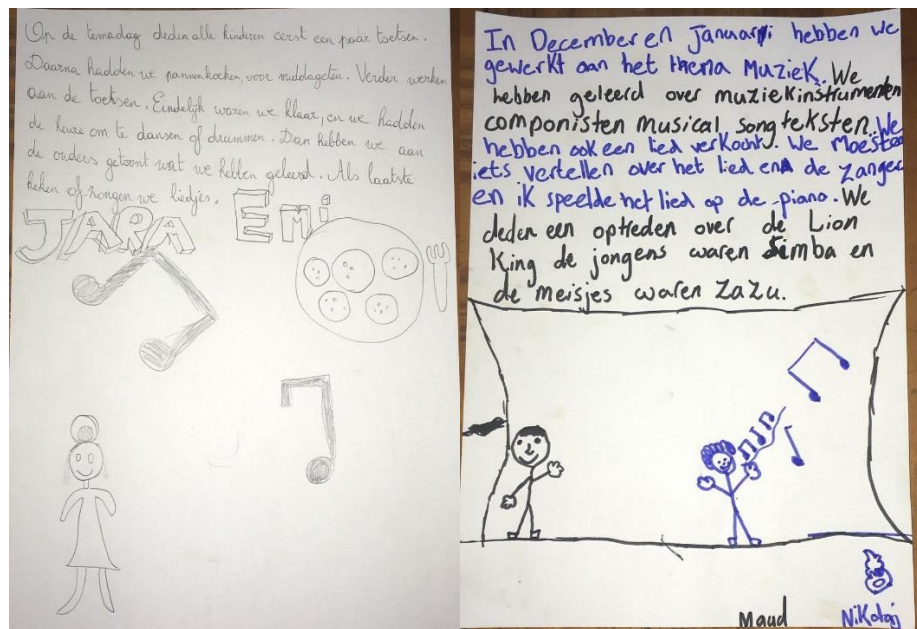 Op de temadag deden alle kinderen eerst een paar toetsen.
Daarna hadden we pannenkoeken voor middageten. Verder werken
aan de toetsen. Eindelijk waren we klaar, en we hadden
de keuze om te dansen of drummen. Dan hebben we aan
de ouders getoont wat we hebben geleerd. Als laatste
keken of zongen we liedjes.
JARA EMi
In December en januari hebben we
gewerkt aan het thema Muziek. We
hebben geleerd over muziekinstrumenten
componisten musical songteksten. We
hebben ook een lied verkocht. We Moesten
iets vertellen over het lied en de zanger
en ik speelde het lied op de piano. We
deden een optreden over de Lion
King de jongens waren Simba en
de meisjes waren Zazu.
Maud Nikolaj